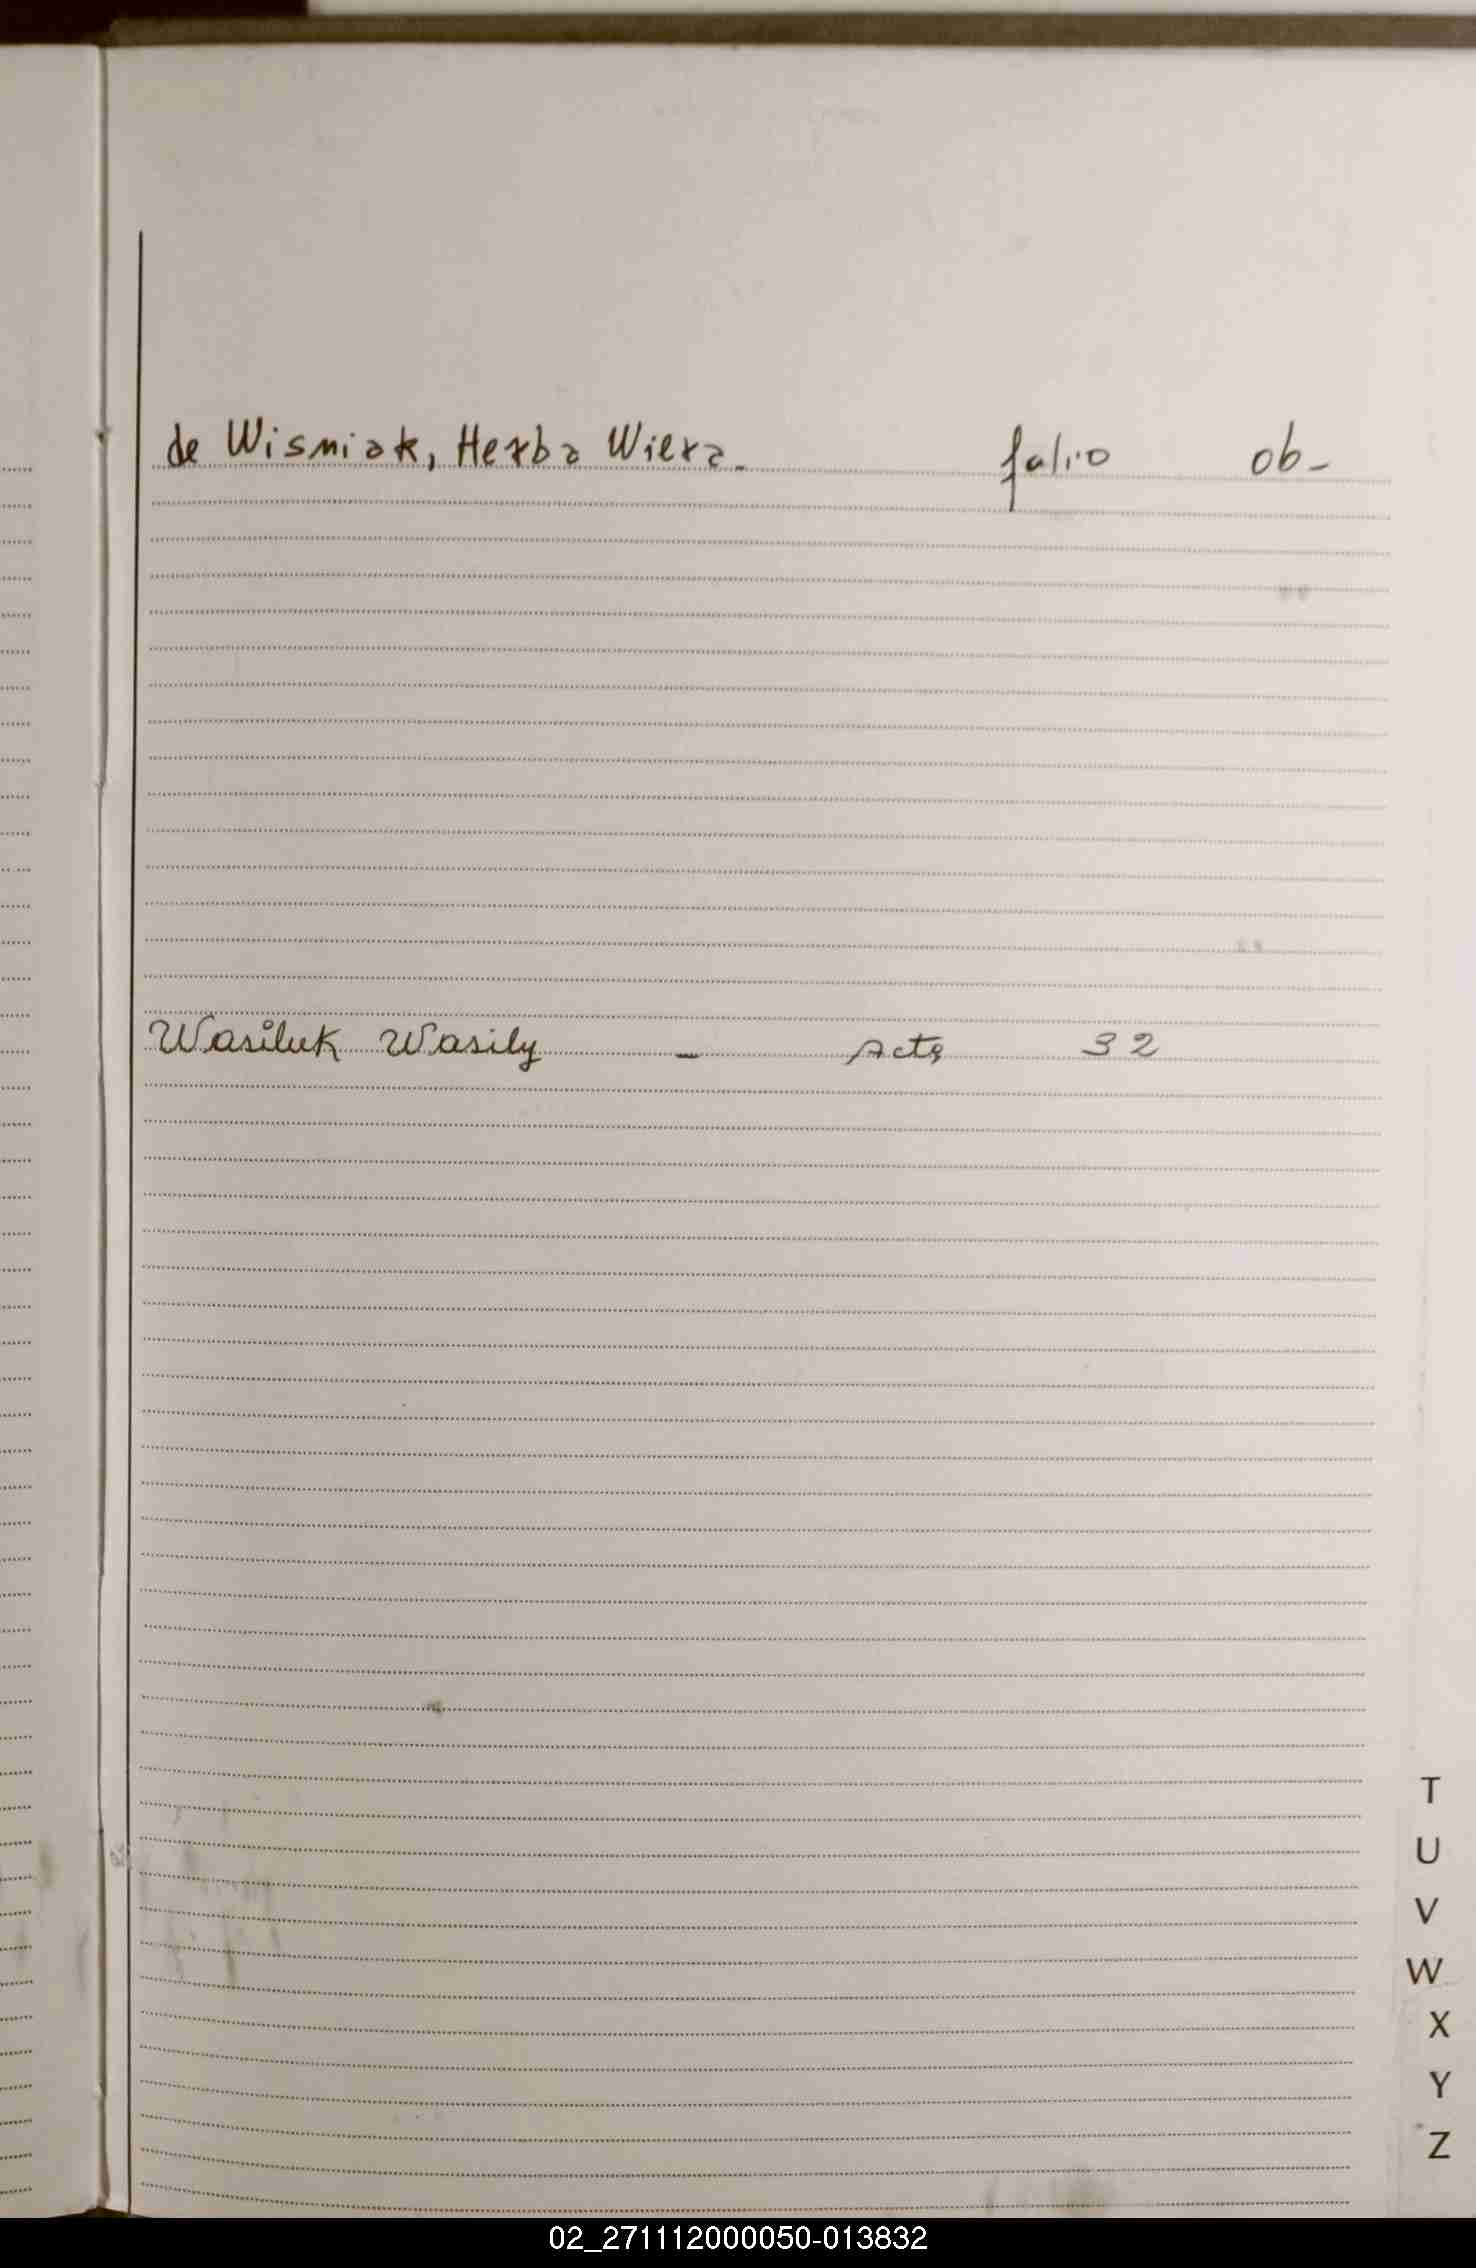 de Wismiak, Herba Wiera. folio 06-
Wasiluk Wasily - Acta 32
T
U
V
W
X
Y
Z
02_271112000050-013832